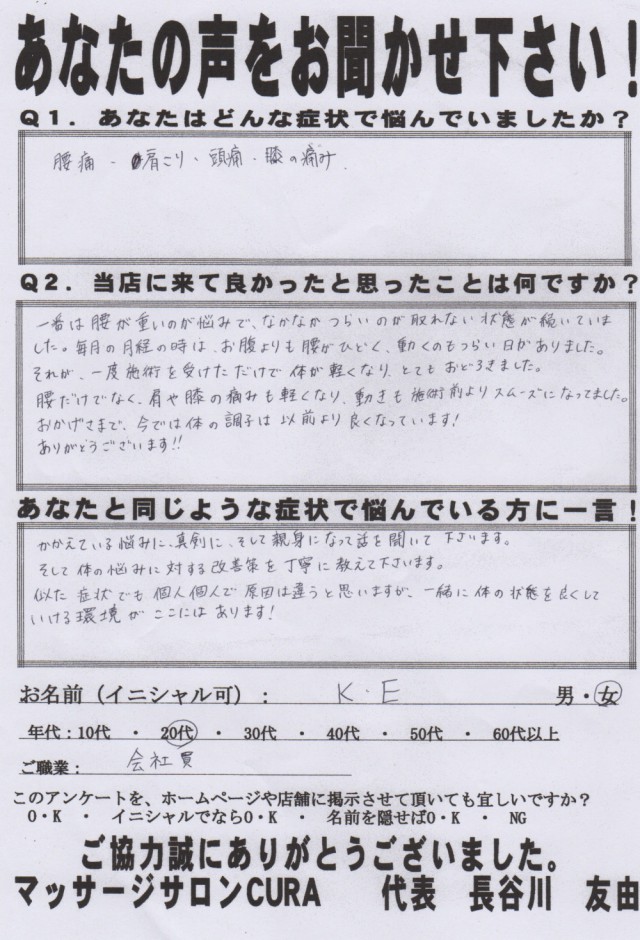 あなたの声をお聞かせ下さい！
Q1．あなたはどんな症状で悩んでいましたか？
腰痛・肩こり・頭痛・膝の痛み
Q2．当店に来て良かったと思ったことは何ですか？
一番は腰が重いのが悩みで、なかなかつらいのが取れない状態が続いていま
した。毎月の月経の時は、お腹よりも腰がひどく、動くのもつらい日がありました。
それが、一度施術を受けただけで体が軽くなり、とてもおどろきました。
腰だけでなく、肩や膝の痛みも軽くなり、動きも施術前よりスムーズになってました。
おかげさまで、今では体の調子は以前より良くなっています！
ありがとうございます!!
あなたと同じような症状で悩んでいる方に一言！
かかえている悩みに、真剣に、そして親身になって話を聞いて下さいます。
そして体の悩みに対する改善策を丁寧に教えて下さいます。
似た症状でも個人個人で原因は違うと思いますが、一緒に体の状態を良くして
いける環境がここにはあります！
お名前（イニシャル可）： K・E 男・女
年代：10代 ・ 20代 ・ 30代 ・ 40代 ・ 50代 ・ 60代以上
ご職業： 会社員
このアンケートを、ホームページや店舗に掲示させて頂いても宜しいですか？
O・K ・ イニシャルでならO・K ・ 名前を隠せばO・K ・ NG
ご協力誠にありがとうございました。
マッサージサロンCURA 代表 長谷川 友由